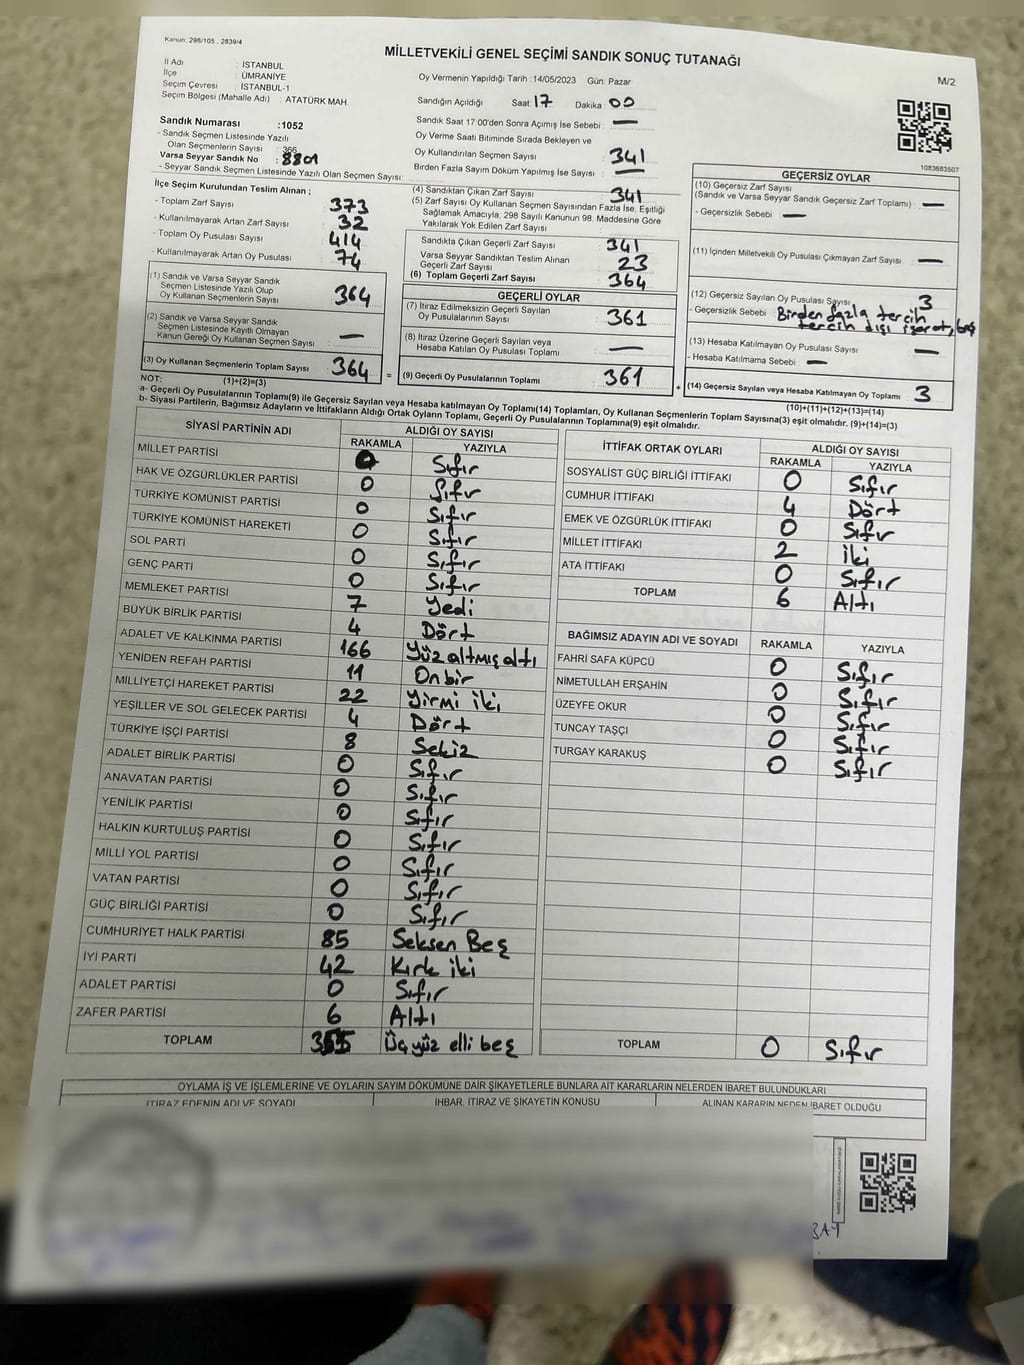 Kanun: 298/105 , 2839/4
MİLLETVEKİLİ GENEL SEÇİMİ SANDIK SONUÇ TUTANAĞI
M/2
İl Adı : İSTANBUL
İlçe : ÜMRANİYE
Seçim Çevresi : İSTANBUL-1
Seçim Bölgesi (Mahalle Adı) : ATATÜRK MAH.
Oy Vermenin Yapıldığı Tarih :14/05/2023 Gün: Pazar
Sandığın Açıldığı Saat: 17 Dakika : 00
Sandık Saat 17:00'den Sonra Açımış İse Sebebi : —
Oy Verme Saati Bitiminde Sırada Bekleyen ve
Oy Kullandırılan Seçmen Sayısı : 341
Birden Fazla Sayım Döküm Yapılmış İse Sayısı : —
Sandık Numarası :1052
- Sandık Seçmen Listesinde Yazılı
Olan Seçmenlerin Sayısı : 366
Varsa Seyyar Sandık No : 8801
- Seyyar Sandık Seçmen Listesinde Yazılı Olan Seçmen Sayısı:
İlçe Seçim Kurulundan Teslim Alınan ;
- Toplam Zarf Sayısı : 373
- Kullanılmayarak Artan Zarf Sayısı : 32
- Toplam Oy Pusulası Sayısı : 414
- Kullanılmayarak Artan Oy Pusulası : 74
(1) Sandık ve Varsa Seyyar Sandık
Seçmen Listesinde Yazılı Olup
Oy Kullanan Seçmenlerin Sayısı : 364
(2) Sandık ve Varsa Seyyar Sandık
Seçmen Listesinde Kayıtlı Olmayan
Kanun Gereği Oy Kullanan Seçmen Sayısı : —
(3) Oy Kullanan Seçmenlerin Toplam Sayısı : 364 =
(4) Sandıktan Çıkan Zarf Sayısı : 341
(5) Zarf Sayısı Oy Kullanan Seçmen Sayısından Fazla İse, Eşitliği
Sağlamak Amacıyla, 298 Sayılı Kanunun 98. Maddesine Göre
Yakılarak Yok Edilen Zarf Sayısı :
Sandıkta Çıkan Geçerli Zarf Sayısı : 341
Varsa Seyyar Sandıktan Teslim Alınan
Geçerli Zarf Sayısı : 23
(6) Toplam Geçerli Zarf Sayısı : 364
GEÇERLİ OYLAR
(7) İtiraz Edilmeksizin Geçerli Sayılan
Oy Pusulalarının Sayısı : 361
(8) İtiraz Üzerine Geçerli Sayılan veya
Hesaba Katılan Oy Pusulası Toplamı : —
(9) Geçerli Oy Pusulalarının Toplamı : 361 +
1083683507
GEÇERSİZ OYLAR
(10) Geçersiz Zarf Sayısı
(Sandık ve Varsa Seyyar Sandık Geçersiz Zarf Toplamı) : —
- Geçersizlik Sebebi : —
(11) İçinden Milletvekili Oy Pusulası Çıkmayan Zarf Sayısı : —
(12) Geçersiz Sayılan Oy Pusulası Sayısı : 3
- Geçersizlik Sebebi : Birden fazla tercih
tercih dışı işaret,
(13) Hesaba Katılmayan Oy Pusulası Sayısı : —
- Hesaba Katılmama Sebebi : —
(14) Geçersiz Sayılan veya Hesaba Katılmayan Oy Toplamı : 3
(10)+(11)+(12)+(13)=(14)
NOT: (1)+(2)=(3)
a- Geçerli Oy Pusulalarının Toplamı(9) ile Geçersiz Sayılan veya Hesaba katılmayan Oy Toplamı(14) Toplamları, Oy Kullanan Seçmenlerin Toplam Sayısına(3) eşit olmalıdır. (9)+(14)=(3)
b- Siyasi Partilerin, Bağımsız Adayların ve İttifakların Aldığı Ortak Oyların Toplamı, Geçerli Oy Pusulalarının Toplamına(9) eşit olmalıdır.
SİYASİ PARTİNİN ADI ALDIĞI OY SAYISI
RAKAMLA YAZIYLA
MİLLET PARTİSİ 0 Sıfır
HAK VE ÖZGÜRLÜKLER PARTİSİ 0 Sıfır
TÜRKİYE KOMÜNİST PARTİSİ 0 Sıfır
TÜRKİYE KOMÜNİST HAREKETİ 0 Sıfır
SOL PARTİ 0 Sıfır
GENÇ PARTİ 0 Sıfır
MEMLEKET PARTİSİ 7 Yedi
BÜYÜK BİRLİK PARTİSİ 4 Dört
ADALET VE KALKINMA PARTİSİ 166 Yüz altmış altı
YENİDEN REFAH PARTİSİ 11 On bir
MİLLİYETÇİ HAREKET PARTİSİ 22 Yirmi iki
YEŞİLLER VE SOL GELECEK PARTİSİ 4 Dört
TÜRKİYE İŞÇİ PARTİSİ 8 Sekiz
ADALET BİRLİK PARTİSİ 0 Sıfır
ANAVATAN PARTİSİ 0 Sıfır
YENİLİK PARTİSİ 0 Sıfır
HALKIN KURTULUŞ PARTİSİ 0 Sıfır
MİLLİ YOL PARTİSİ 0 Sıfır
VATAN PARTİSİ 0 Sıfır
GÜÇ BİRLİĞİ PARTİSİ 0 Sıfır
CUMHURİYET HALK PARTİSİ 85 Seksen Beş
İYİ PARTİ 42 Kırk iki
ADALET PARTİSİ 0 Sıfır
ZAFER PARTİSİ 6 Altı
TOPLAM 355 Üç yüz elli beş
İTTİFAK ORTAK OYLARI ALDIĞI OY SAYISI
RAKAMLA YAZIYLA
SOSYALİST GÜÇ BİRLİĞİ İTTİFAKI 0 Sıfır
CUMHUR İTTİFAKI 4 Dört
EMEK VE ÖZGÜRLÜK İTTİFAKI 0 Sıfır
MİLLET İTTİFAKI 2 İki
ATA İTTİFAKI 0 Sıfır
TOPLAM 6 Altı
BAĞIMSIZ ADAYIN ADI VE SOYADI RAKAMLA YAZIYLA
FAHRİ SAFA KÜPCÜ 0 Sıfır
NİMETULLAH ERŞAHİN 0 Sıfır
ÜZEYFE OKUR 0 Sıfır
TUNCAY TAŞÇI 0 Sıfır
TURGAY KARAKUŞ 0 Sıfır
TOPLAM 0 Sıfır
OYLAMA İŞ VE İŞLEMLERİNE VE OYLARIN SAYIM DÖKÜMÜNE DAİR ŞİKAYETLERLE BUNLARA AİT KARARLARIN NELERDEN İBARET BULUNDUKLARI
İTİRAZ EDENİN ADI VE SOYADI İHBAR, İTİRAZ VE ŞİKAYETİN KONUSU ALINAN KARARIN NEDEN İBARET OLDUĞU